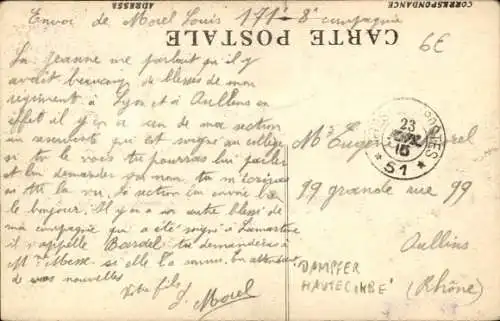 Envoi de Morel Louis 171e 8e compagnie
CORRESPONDANCE
CARTE POSTALE
ADRESSE
6E
La Jeanne me partait qu'il y
avait beaucoup de blessés de mon
régiment à Lyon et à Oullins en
effet il y en a un de ma section
qui est soigné au collège
si tu le vois tu pourras lui parler
et lui demander son nom tu m'écriras
si tu l'a vu. la section lui envoie bien
le bonjour. Il y en a un autre blessé de
ma compagnie qui a été soigné à Lamartine
il s'appelle Bardel tu demanderas à
Mme Messe si elle l'a connu. En attendant
de vos nouvelles
Votre fils
L. Morel
23
15
POSTES
* 51 *
Mr Eugène Morel
99 grande rue 99
Oullins
(Rhône)
DAMPFER
HAUTECOMBE